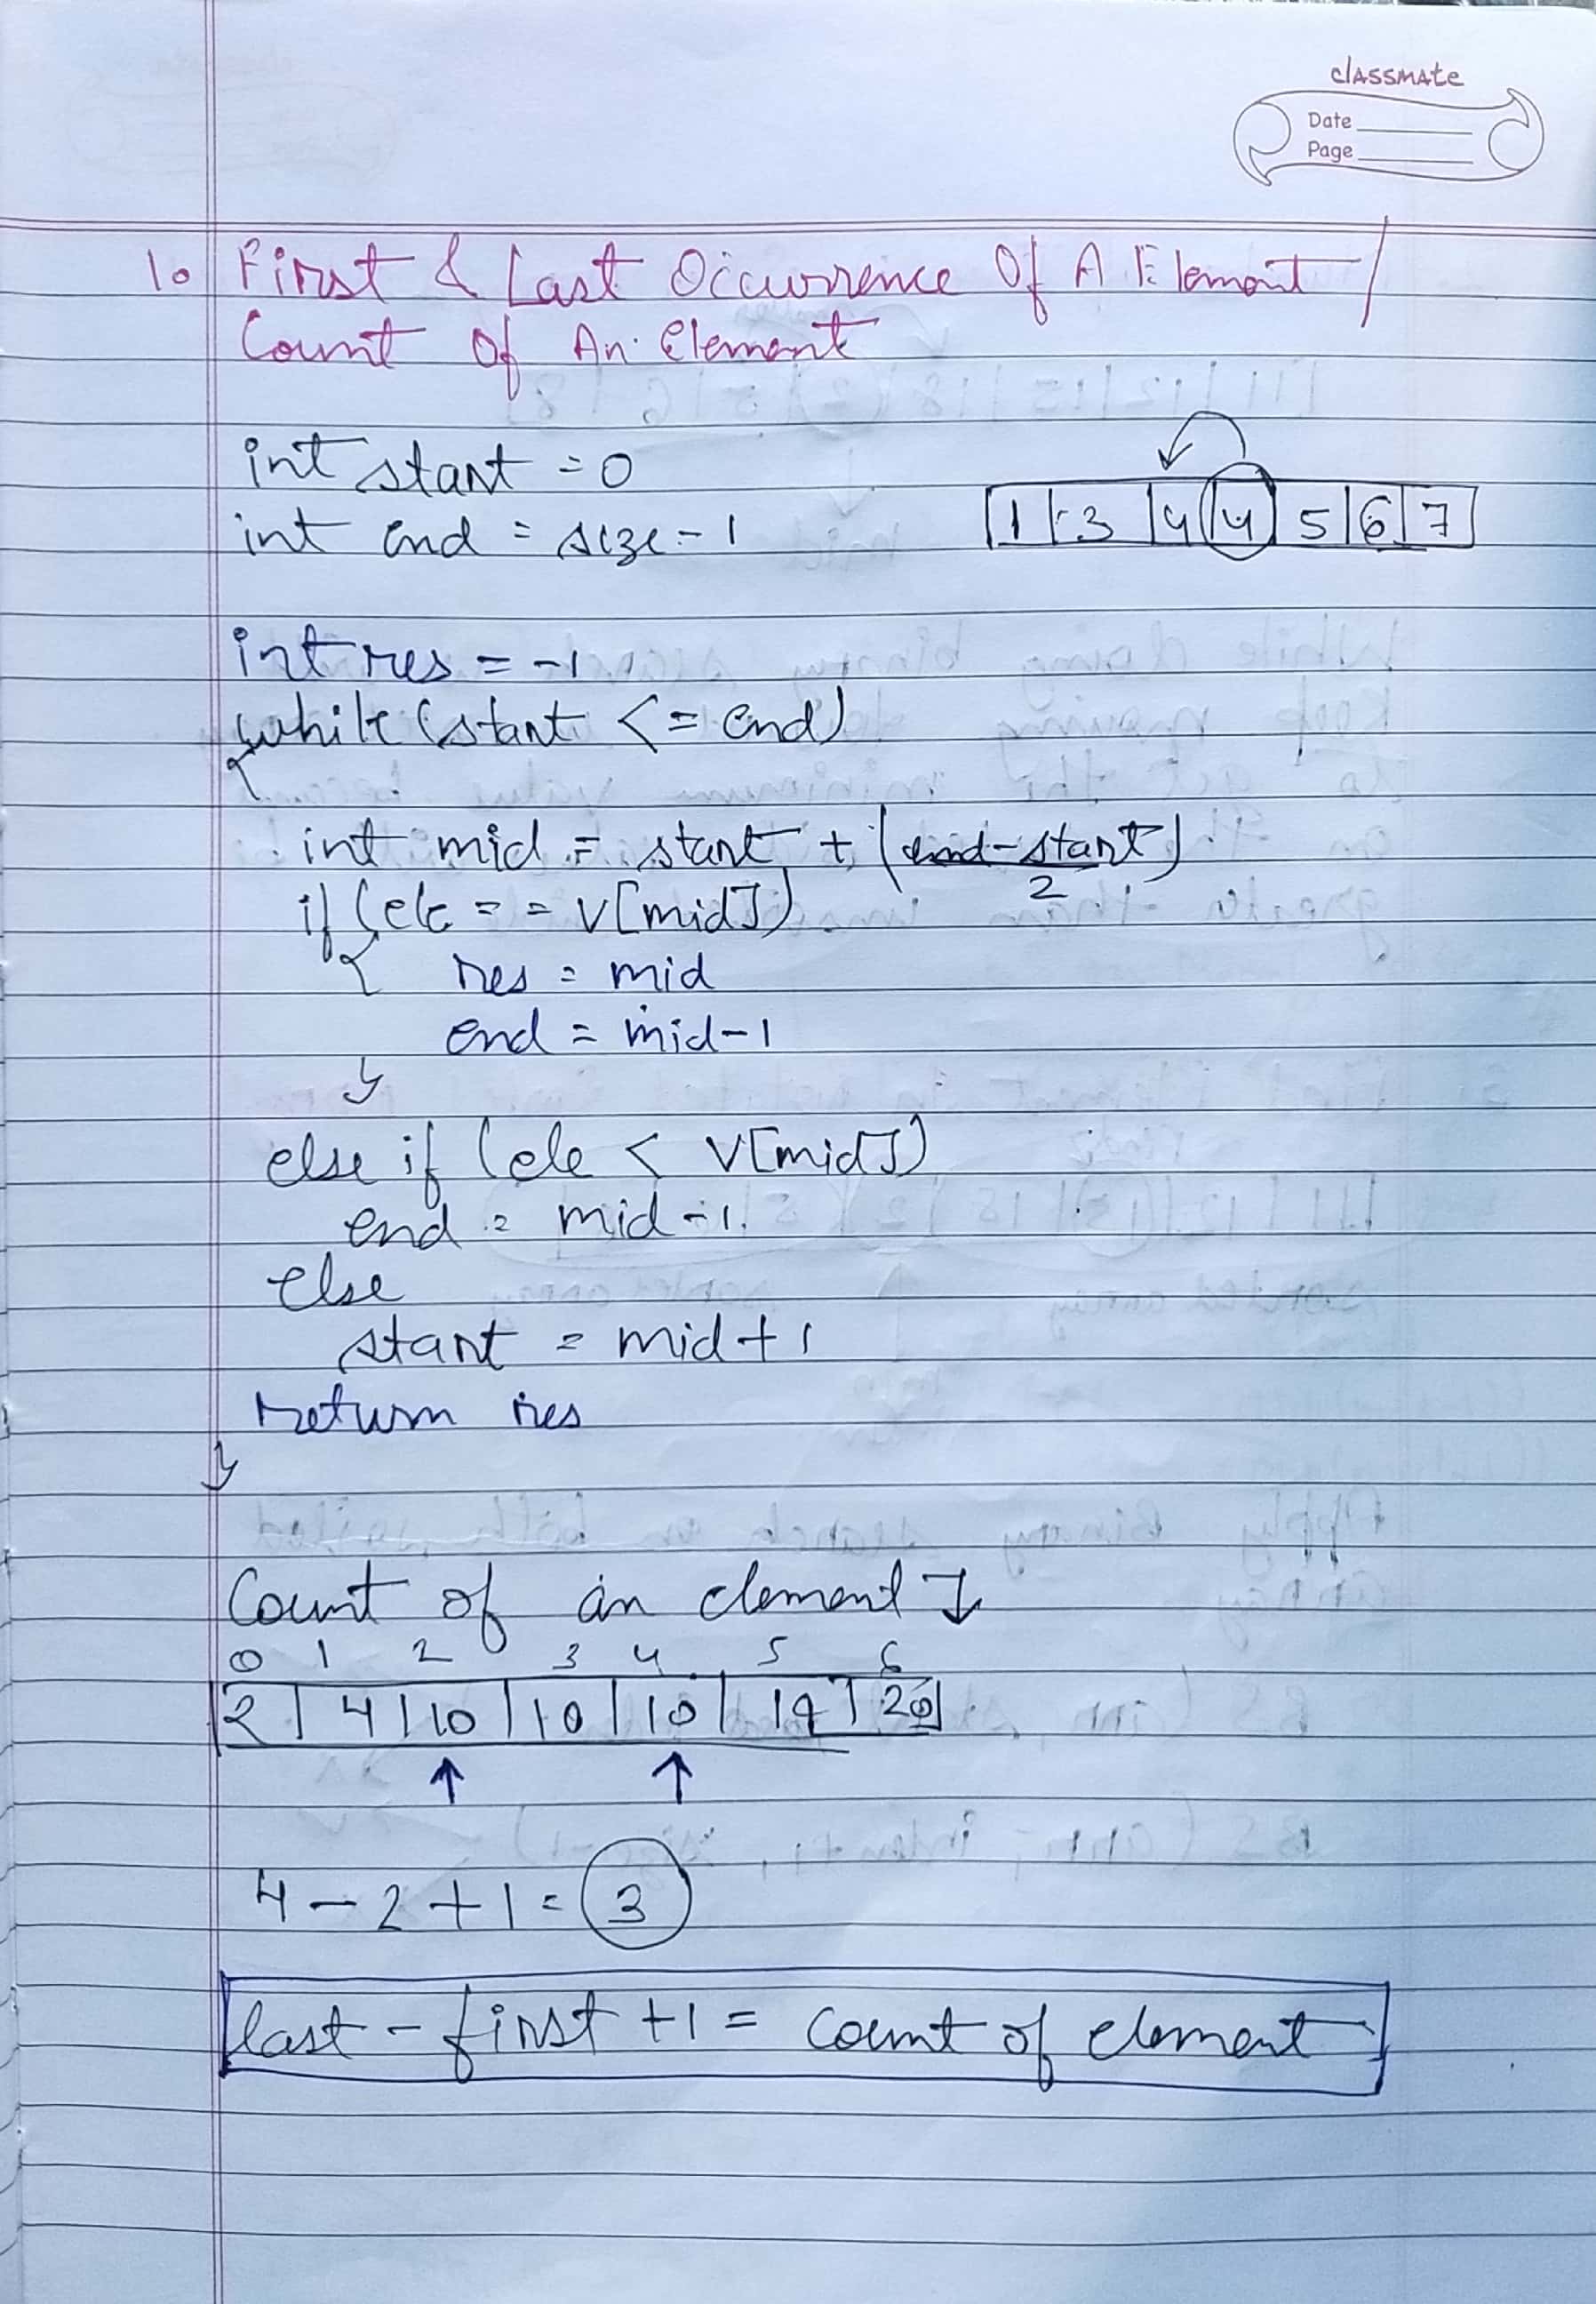 classmate
Date
Page
1. First & Last Occurrence Of A Element /
Count Of An Element
int start = 0
int end = size - 1
1 | 3 | 4 | 4 | 5 | 6 | 7
int res = -1
while (start <= end)
{
int mid = start + (end-start)
2
if (ele == v[mid])
{ res = mid
end = mid-1
}
else if (ele < v[mid])
end = mid-1
else
start = mid+1
return res
}
Count of an element
0 1 2 3 4 5 6
2 | 4 | 10 | 10 | 10 | 19 | 20
4 - 2 + 1 = 3
last - first + 1 = count of element